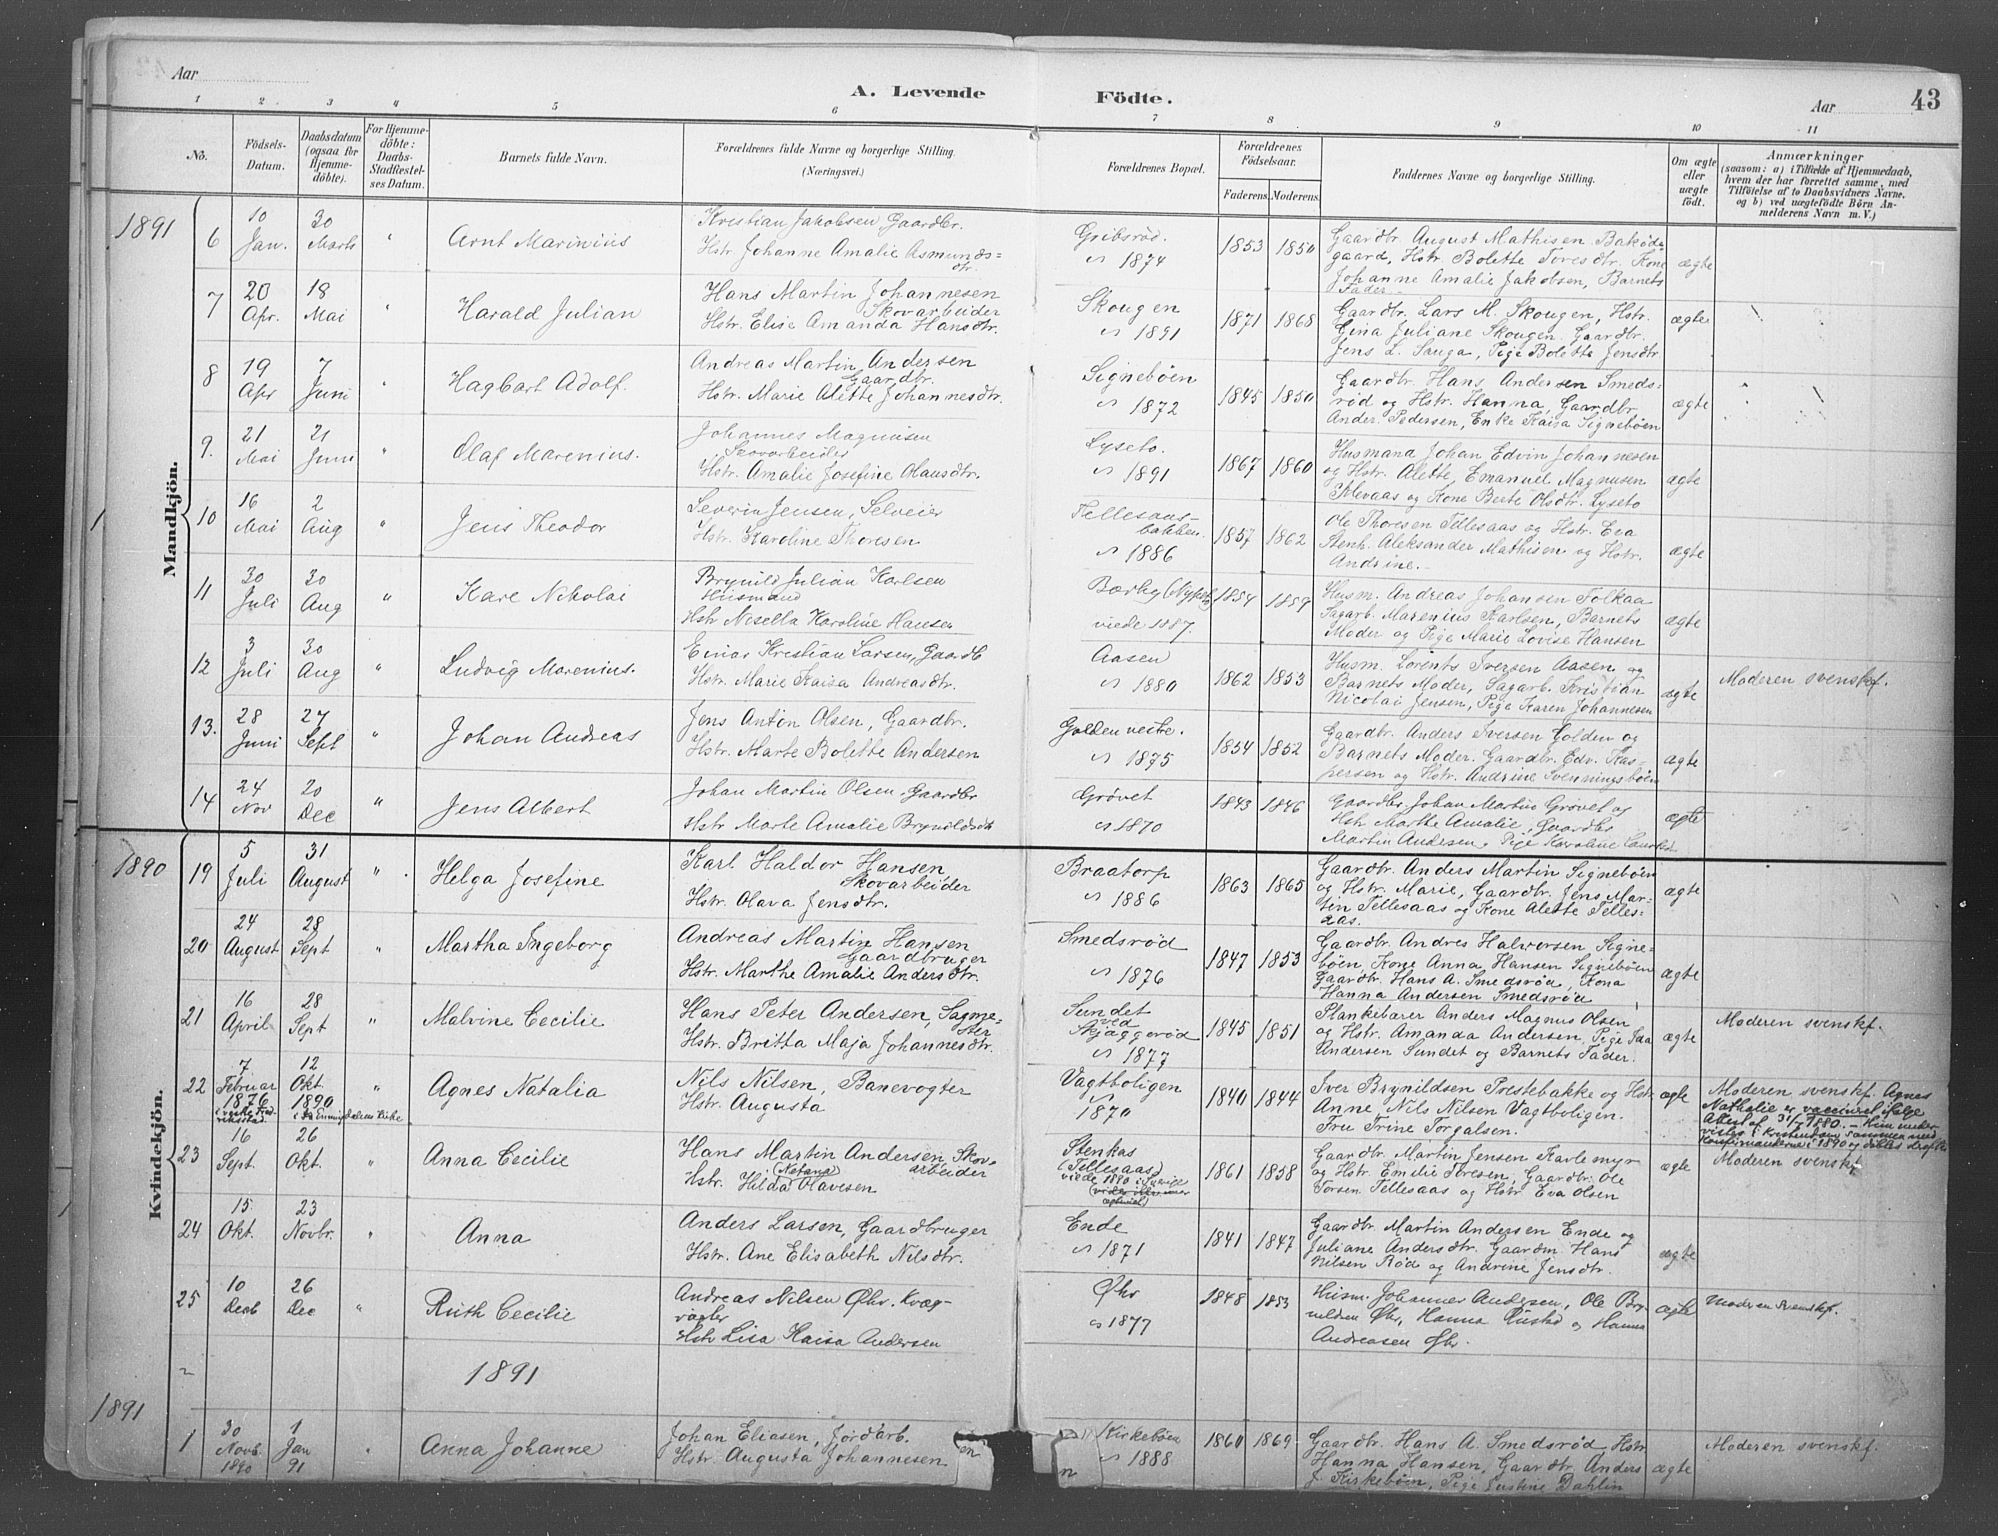 Aar
A. Levende Födte.
Aar
43
1 2 3 4 5 6 7 8 9 10 11
No.
Födsels-Datum.
Daabsdatum (ogsaa for Hjemme-döbte).
For Hjemme-döbte: Daabs-Stadfæstel-ses Datum.
Barnets fulde Navn.
Forældrenes fulde Navne og borgerlige Stilling. (Næringsvei.)
Forældrenes Bopæl.
Forældrenes Födselsaar.
Faderens. Moderens.
Faddernes Navne og borgerlige Stilling.
Om ægte eller uægte födt.
Anmærkninger
(saasom: a) i Tilfælde af Hjemmedaab, hvem der har forrettet samme, med Tilföielse af to Daabsvidners Navne, og b) ved uægtefödte Börn An-melderens Navn m. V.)
Mandkjön.
1891
6 10 Jan. 30 Marts " Arnt Marinius
Kristian Jakobsen Gaardbr.
Hstr. Johanne Amalie Asmunds-dtr.
Gribsrød. 1874
1853 1850
Gaardbr. August Mathisen Bakøde-
gaard, Hstr. Bolette Toresdtr. Kone
Johanne Amalie Jakobsen, Barnets
Fader.
ægte
7 20 Apr. 18 Mai " Harald Julian
Hans Martin Johannesen
Skovarbeider
Hstr. Elise Amanda Hansdtr.
Skougen 1891
1871 1868
Gaardbr. Lars M. Skougen, Hstr.
Gina Juliane Skougen, Gaardbr.
Jens L. Sauga, Pige Bolette Jensdtr
ægte
8 19 Apr 7 Juni " Hagbart Adolf.
Andreas Martin Andersen
Gaardbr.
Hstr. Marie Alette Johannesdtr.
Signebøen 1872
1845 1850
Gaardbr. Hans Andersen Smeds-
rød og Hstr. Hanna, Gaardbr.
Ander. Pedersen, Enke Kaisa Signebøen
ægte
9. 21 Mai 21 Juni " Olaf Marenius.
Johannes Magnusen
Skovarbeider
Hstr. Amalie Josefine Olausdtr.
Lyseto. 1891
1867 1860
Husmand Johan Edvin Johannesen
og Hstr. Alette, Emanuel Magnusen
og Kone Berte Olsdtr. Lyseto
ægte
10 16 Mai 2 Aug " Jens Theodor
Severin Jensen, Selveier
Hstr. Karoline Thoresen
Tellesaas-bakken. 1886
1857 1862
Ole Thoresen Tellesaas og Hstr. Eva
Stenh. Aleksander Mathisen og Hstr.
Andrine.
ægte
11 30 Juli 30 Aug " Kare Nikolai
Brynild Julian Karlsen
Husmand
Hstr Nesella Karoline Hansen
Bærby viede 1887.
1854 1859
Husm. Andreas Johansen Folkaa
Sagarb. Marenius Karlsen, Barnets
Moder og Pige Marie Lovise Hansen
ægte
12 3 Juli 30 Aug " Ludvig Marenius.
Einar Kristian Larsen, Gaardb
Hstr. Marie Kaisa Andreasdtr.
Aasen 1880
1862 1853
Husm. Lorents Iversen Aasen og
Barnets Moder, Sagarb. Kristian
Nicolai Jensen, Pige Karen Johannesen
ægte
Moderen svensk.
13. 28 Juni 27 Sept " Johan Andreas
Jens Anton Olsen, Gaardbr.
Hstr. Marte Bolette Andersen
Golden vestre. 1875
1854 1852
Gaardbr. Anders Iversen Golden og
Barnets Moder. Gaardbr. Edv. Kas-
persen og Hstr. Andrine Svenningsbøen
ægte
14 24 Nov 20 Dec " Jens Albert
Johan Martin Olsen, Gaardbr
Hstr Marte Amalie Brynildsdt
Grøvet 1870
1843 1846
Gaardbr. Johan Martin Grøvet og
Hstr Marthe Amalie, Gaardbr
Martin Andersen, Pige Karoline
ægte
Kvindekjön.
1890
19 5 Juli 31 August " Helga Josefine
Karl Haldor Hansen
Skovarbeider
Hstr. Olava Jensdtr.
Braatorp 1886
1863 1865
Gaardbr. Anders Martin Signebøen
og Hstr. Marie, Gaardbr. Jens Mar-
tin Tellesaas og Kone Alette Telles-
aas.
ægte
20 24 August 28 Sept " Martha Ingeborg
Andreas Martin Hansen
Gaardbruger
Hstr. Marthe Amalie Andersdtr.
Smedsrød 1876
1847 1853
Gaardbr. Andres Halvorsen Signe-
bøen, Kone Anna Hansen Signebøen
Gaardbr. Hans A. Smedsrød, Kona
Hanna Andersen Smedsrød
ægte
21 16 April 28 Sept " Malvine Cecilie
Hans Peter Andersen, Sagme-
ster
Hstr. Britta Maja Johannesdtr.
Sundet ved Skjaggerød 1877
1845 1851
Plankebærer Anders Magnus Olsen
og Hstr. Amanda Andersen, Pige Ida
Andersen Sundet og Barnets Fader.
ægte
Moderen svensk.
22 7 Februar 1876 12 Okt. 1890 " Agnes Natalia
Nils Nilsen, Banevogter
Hstr. Augusta
Vagtboligen 1870
1840 1844
Iver Brynildsen Prestebakke og Hstr
Anne, Nils Nilsen Vagtboligen.
Fru Trine Torgalsen.
ægte
Moderen svensk. Agnes
Nathalie er vaccineret ifølge
Attest af 31/7 1880.
23 16 Sept. 26 Okt. " Anna Cecilie
Hans Martin Andersen Skov-
arbeider
Hstr. Hilda Olavesen
Stenkas (Tellesaas) viede 1880 i Sverige
1861 1858
Gaardbr. Martin Jensen Karlsmyr
og Hstr. Emilie Toresen, Gaardbr. Ole
Torsen Tellesaas og Hstr. Eva Olsen
ægte
Moderen svensk
24 15 Okt. 23 Novbr. " Anna
Anders Larsen, Gaardbruger
Hstr. Ane Elisabeth Nilsdtr.
Ende 1871
1841 1847
Gaardbr. Martin Andersen Ende og
Juliane Andersdtr. Gaardm Hans
Nilsen Rød og Andrine Jensdtr.
ægte
25 10 Decb 26 Dec " Ruth Cecilie
Andreas Nilsen Øhr. Kvæg-
vogter
Hstr Lisa Kaisa Andersen
Øhr 1877
1848 1853
Husm. Johannes Andersen, Ole Bry-
nildsen Øhr, Hanna og Hanna
Andreasen Øhr.
ægte
Moderen svensk.
1891
1891
1 30 Novb. 1890 1 Jan 91 " Anna Johanne
Johan Eliasen, Jordarb.
Hstr. Augusta Johannesen
Kirkebøen 1888
1860 1869
Gaardbr. Hans A. Smedsrød, Hstr
Hanna Hansen, Gaardbr. Anders
J. Kirkebøen, Pige Justine Dahlin
ægte
Moderen svensk.